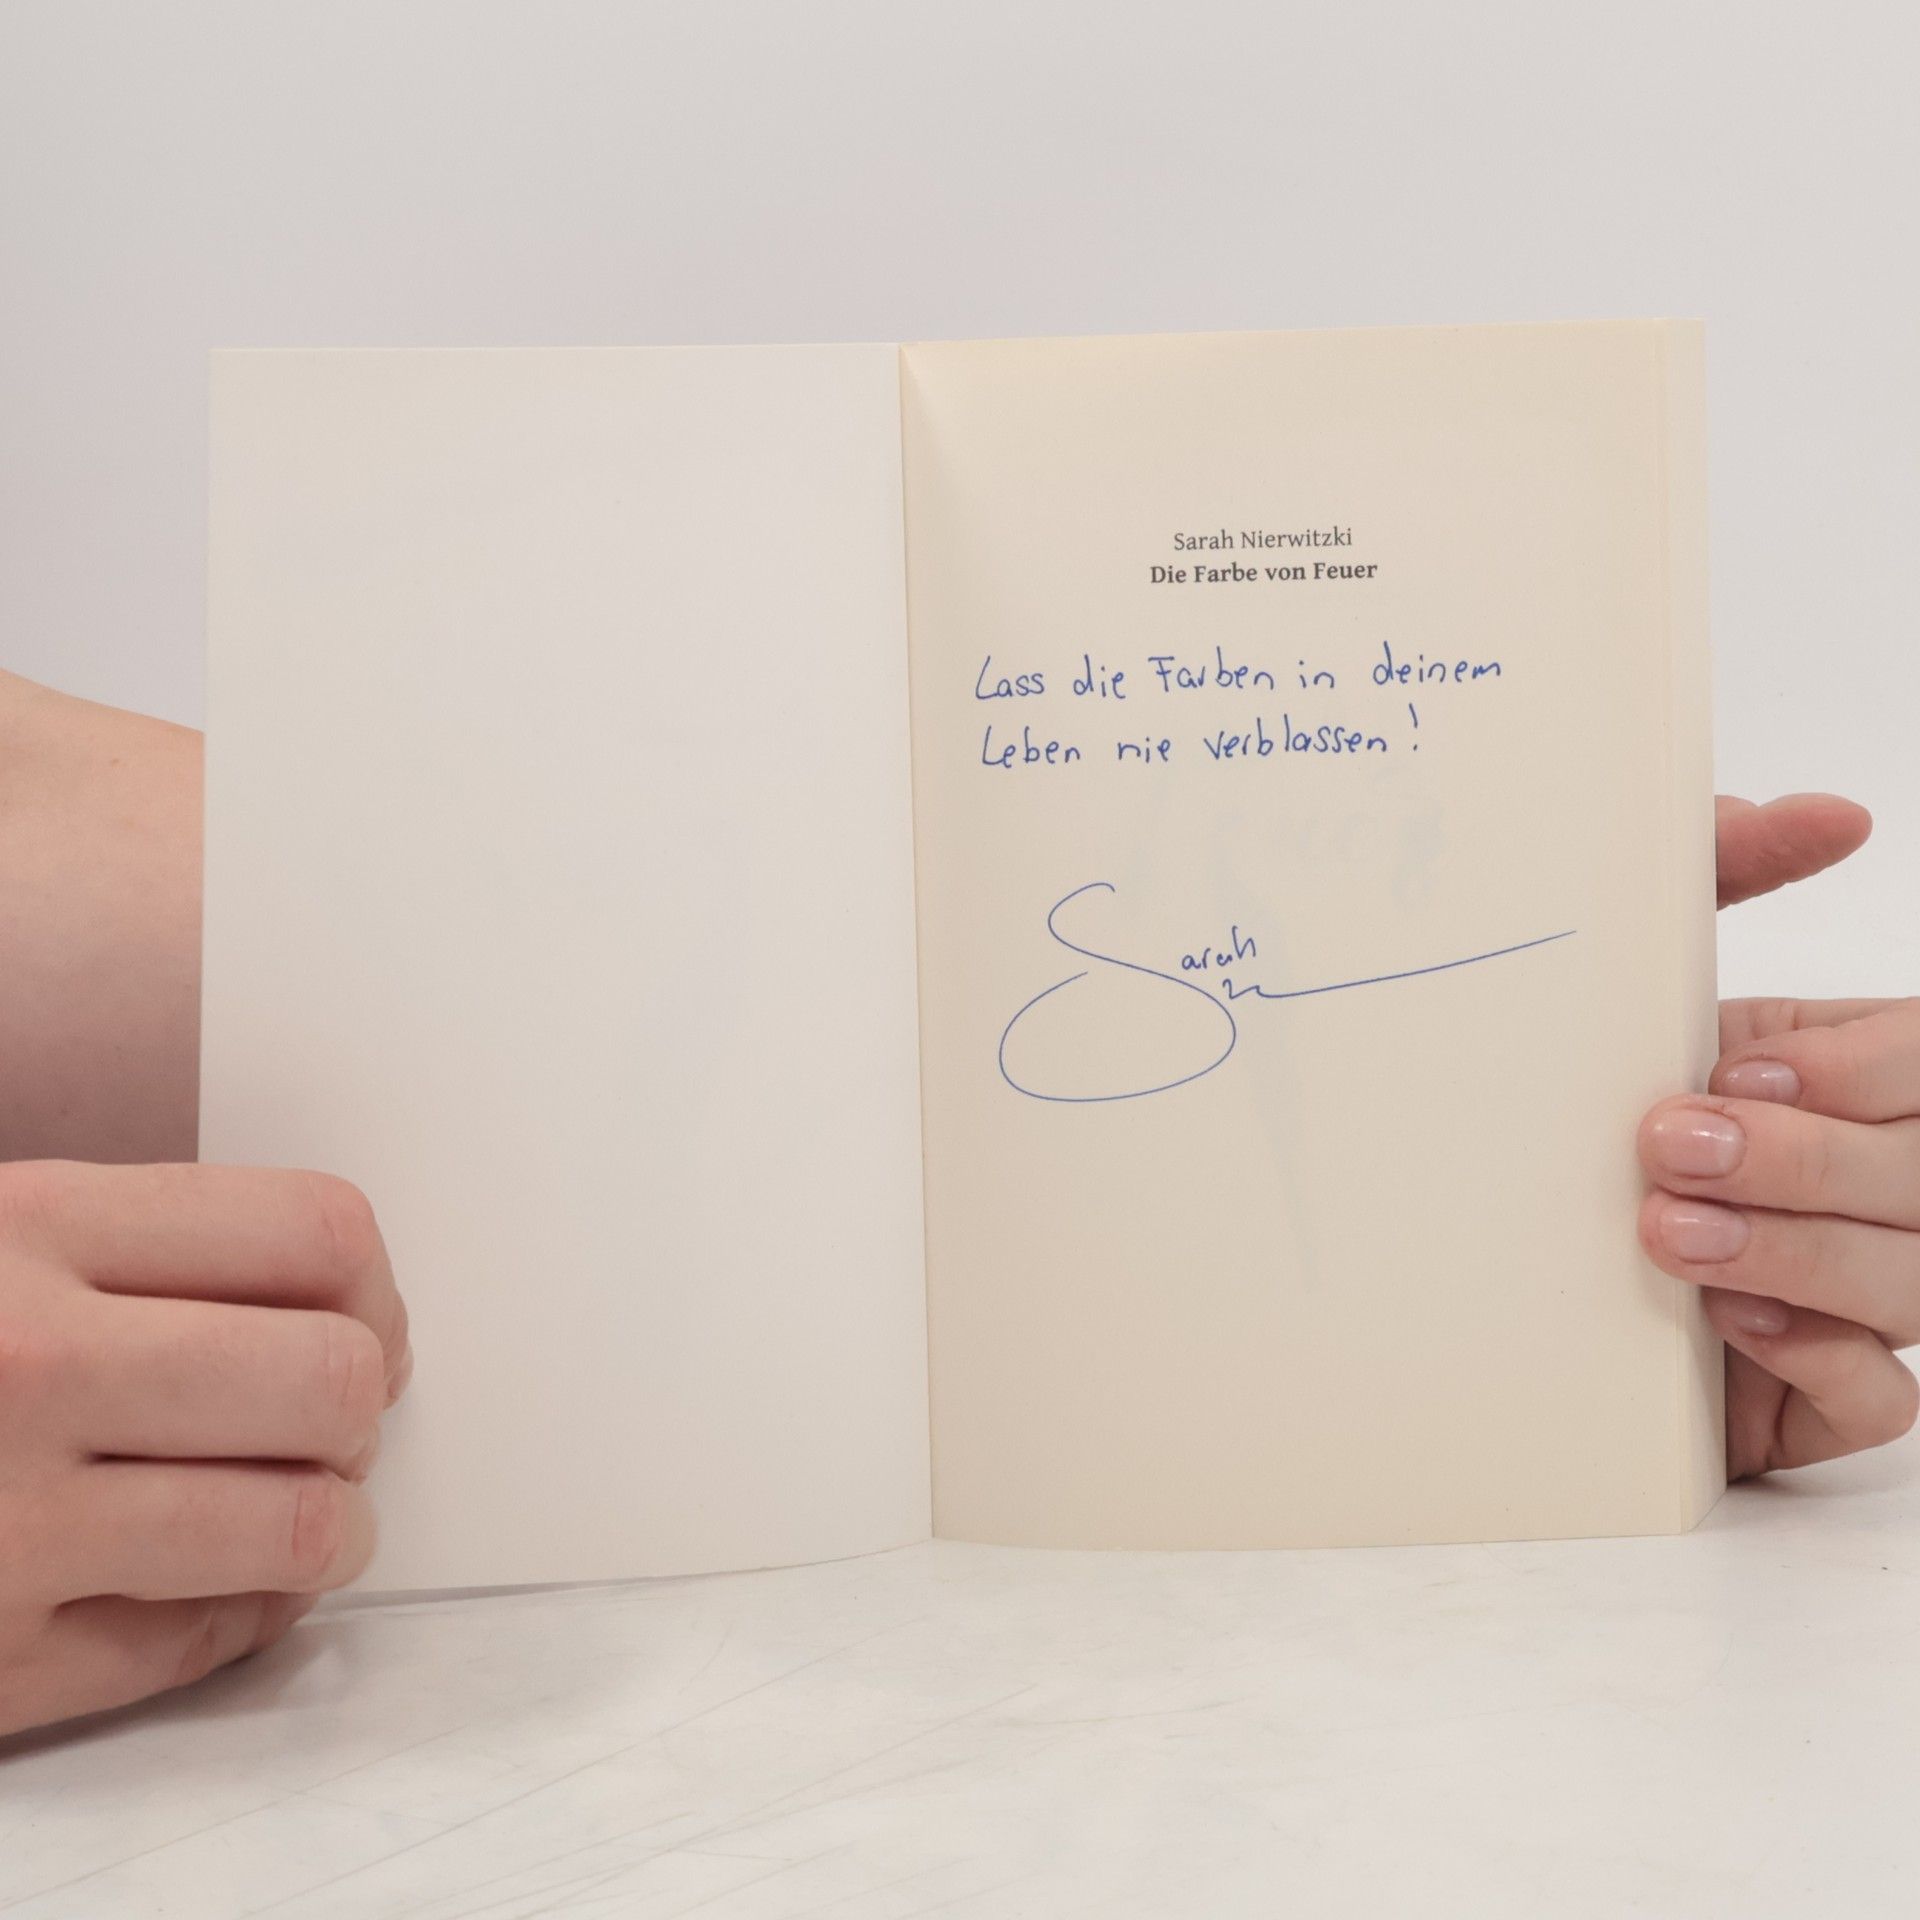 Sarah Nierwitzki
Die Farbe von Feuer
Lass die Farben in deinem
Leben nie verblassen!
Sarah